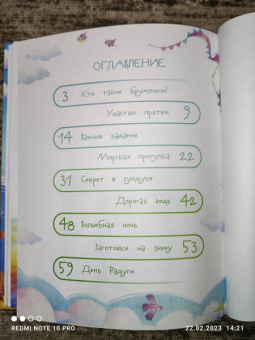 ОГЛАВЛЕНИЕ
3 Кто такие брумлики?
Ушастые прятки 9
14 Важное задание
Морская прогулка 22
31 Секрет в сундуке
Дорогая вещь 42
48 Волшебная ночь
Заготовки на зиму 53
59 День Радуги
REDMI NOTE 10 PRO
22.02.2023 14:21